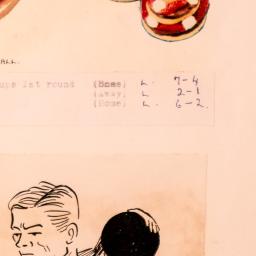 ALL.
ups 1st round (Home) L. 7-4
(Away) L 2-1
(Home) L. 6-2.